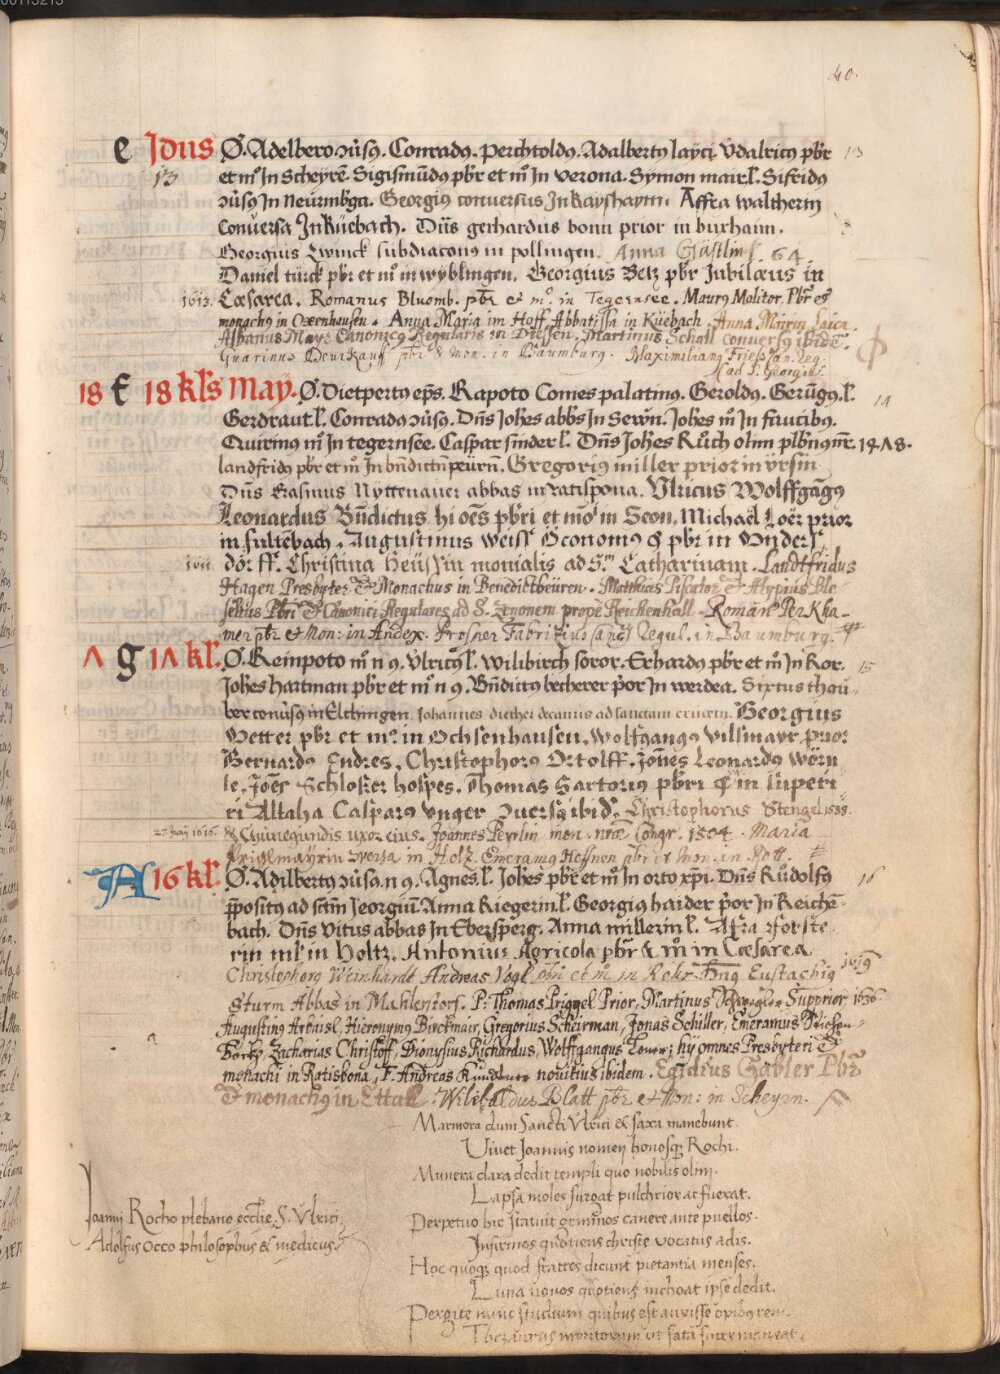 40.
e Idus Ø. Adelbero ꝯũsꝰ. Conradꝰ. Perchtoldꝰ. Adalbertꝰ layci. Vdalricꝰ pbr̄ 13
13 et mͦ In Scheyrē. Sigismūdꝰ pbr̄ et mͦ In Verona. Symon mair l̄. Sifridꝰ
ꝯũsꝰ In Neürmbꝰga. Georgiꝰ conuersus In kayshaym. Affra waltherin
conũersa In Küebach. Dn̄s gerhardus bonn prior in buxhaim.
Georgius Zwinck subdiaconꝰ in pollingen. Anna Gästlin l. 64.
Daniel türck pbr̄ et mͦ in wyblingen. Georgius Betz pbr̄ Jubilæus in
1613. Cæsarea. Romanus Bluomb. pbr̄ & mͦ. in Tegernsee. Maurꝰ Molitor, Pbr̄ et
monachꝰ in Oxenhausen. Anna Maria im Hoff Abbatissa in Küebach. Anna Maria Laica.
Albanus May: Canonicꝰ Regularis in Diessen. Martinus Schall conuersꝰ ibidē.
Guarinus Deurkauf pbr & mon. in Baumburg. Maximilianꝰ Can. Reg.
ad S. Georgiū.
18 f 18 kl̄s May. Ø. Dietpertꝰ ep̄s. Rapoto Comes palatinꝰ. Geroldꝰ. Gerũgꝰ. l̄. 14
Gerdraut l̄. Conradꝰ ꝯũsꝰ. Dn̄s Joh̄es abb̄s In Sewn̄. Joh̄es mͦ In
Quirinꝰ mͦ In tegernsēe. Caspar sinder l̄. Dn̄s Joh̄es Rũch olnn plb̄nꝰ nr̄. 1478.
landfridꝰ pbr̄ et mͦ In bn̄dictnpeürn̄. Gregoriꝰ miller prior in yrsin
Dn̄s Erasmus Nyttenauer abbas in ratispona. Vlricus Wolffgāgꝰ
Leonardus Bn̄dictus hi oēs pbr̄i et mōͥ in Seon, Michaël Loër prior
in sultebach. Augustinus Weiss Oconomꝰ & pbr̄ in Vnders
1611 dorff. Christina Heüssin monialis ad S.ᵐ Catharinam. Landtfridus
Hagen Presbyter & Monachus in Benedictbeüren. Matthias Piscator & Alypius Ble
setius Pbr̄i & Canonici Regulares ad S. Zenonem prope Reichenhall. Romanꝰ Perkha-
mer pbr̄ & Mon: in Andex. Fabritius Regul. in Baumburg.
Λ g 1Λ kl̄. Ø. Reinpoto mͦ n ꝯ. Vlricꝰ l̄. Wilibirch soror. Erhardꝰ pbr̄ et mͦ In Ror. 15
Joh̄es Hartman pbr̄ et mͦ n ꝯ. Bn̄dictꝰ becherer p̄or In werdea. Sixtus thau
ber conũsꝰ in Elchingen. Johannes diethei decanus ad sanctam crucem. Georgius
Vetter pbr̄ et mͦ. in Ochsenhausen. Wolfgangꝰ Vilsmayr prior
Bernardꝰ Endres, Christophorꝰ Ortolff. Joñes Leonardꝰ Wörn
le. Joēs Schlosser hospes. Thomas Sartoriꝰ pbr̄i & in superi
ri Altaha Casparꝰ Vnger ꝯuersꝰ ibid. Christophorus Stengel 1588.
27 Juny 1616. & Chunegundis uxor eius. Joannes Peyrlin mon. nr̄æ Congr. 1804. Maria
Krigelmayrin ꝯversa in Holz. Emeramꝰ Heffnen pbr et Mon. in Rott.
A 16 kl̄. Ø. Adilbertꝰ ꝯũsꝰ. n ꝯ. Agnes l̄. Joh̄es pbr̄ et mͦ In orto xp̄i. Dn̄s Rũdolfꝰ 16
p̄positꝰ ad sct̄m Jeorgiū. Anna Riegerin l̄. Georgiꝰ haider p̄or In Reichē
bach. Dn̄s Vitus abbas in Ebersperg. Anna millerin l̄. Afra forste
rin ml̄ in Holtz. Antonius Agricola pbr̄ & mͦ in Cæsarea
Christophorꝰ Weinhardt Andreas Vogl pbri et mͥ in Rohr. Dn̄ꝰ Eustachiꝰ 1619
Sturm Abbas in Mahlerstorf. P. Thomas Priggel Prior, Martinus Schwegler Supprior 1636
Augustinꝰ Arbaisl, Hieronymꝰ Birckmair, Gregorius Scheirman, Jonas Schiller, Emeramus
Zacharias Christoff, Dionysius Richardus, Wolffgangus hy omnes Presbyteri &
monachi in Ratisbona, F. Andreas Kündtner nouitius ibidem. Egidius Gabler Pbr̄
& monachꝰ in Ettall. Wilibaldus Blatt pbr & Mon: in Scheyrn.
Marmora dum Sancti Vlrici & saxa manebunt.
Viuet Joannis nomen honosqꝫ Rochi.
Munera clara dedit templi quo nobilis olim.
Lapsa moles surgat pulchrior ac fuerat.
Perpetuo hic statuit geminos canere ante puellos.
Infirmos quotiens christe vocatus adis.
Hoc quoqꝫ quod fratres dicunt pietantia menses.
Luna nouos quotiens inchoat ipse dedit.
Pergite nunc studium quibus est auxisse
Thezaurus
Joanni Rocho plebano eccl̄ie S. Vlrici.
Adolfus Occo philosophus & medicus.